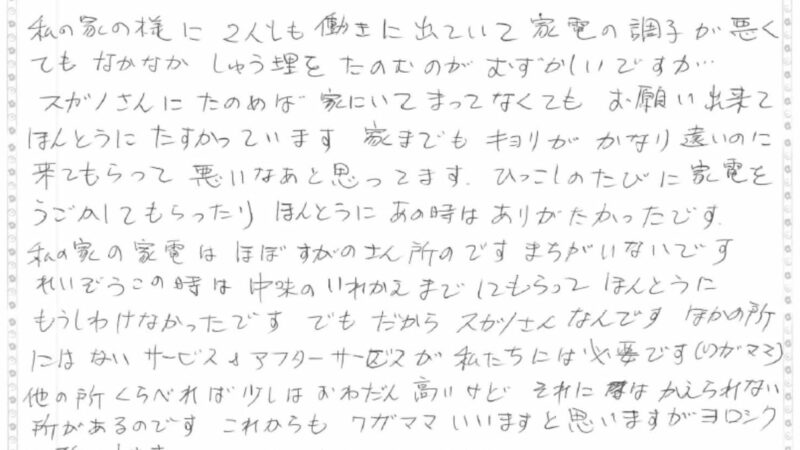 私の家の様に 2人とも 働きに 出ていて 家電の 調子が 悪く
ても なかなか しゅう理を たのむのが むずかしいですが…
スガノさんに たのめば 家にいて まってなくても お願い出来て
ほんとうに たすかっています 家までも キョリが かなり遠いのに
来てもらって 悪いなあと思ってます. ひっこしのたびに 家電を
うごかしてもらったり ほんとうに あの時は ありがたかったです.
私の家の 家電は ほぼ すがのさん所のです まちがいないです
れいぞうこの時は 中味の いれかえまで してもらって ほんとうに
もうしわけなかったです でも だから スガノさん なんです ほかの所
にはない サービス アフターサービスが 私たちには 必要です(ワガママ)
他の所 くらべれば 少しは おねだん 高いけど それに は かえられない
所があるのです これからも ワガママ いいますと 思いますが ヨロシク